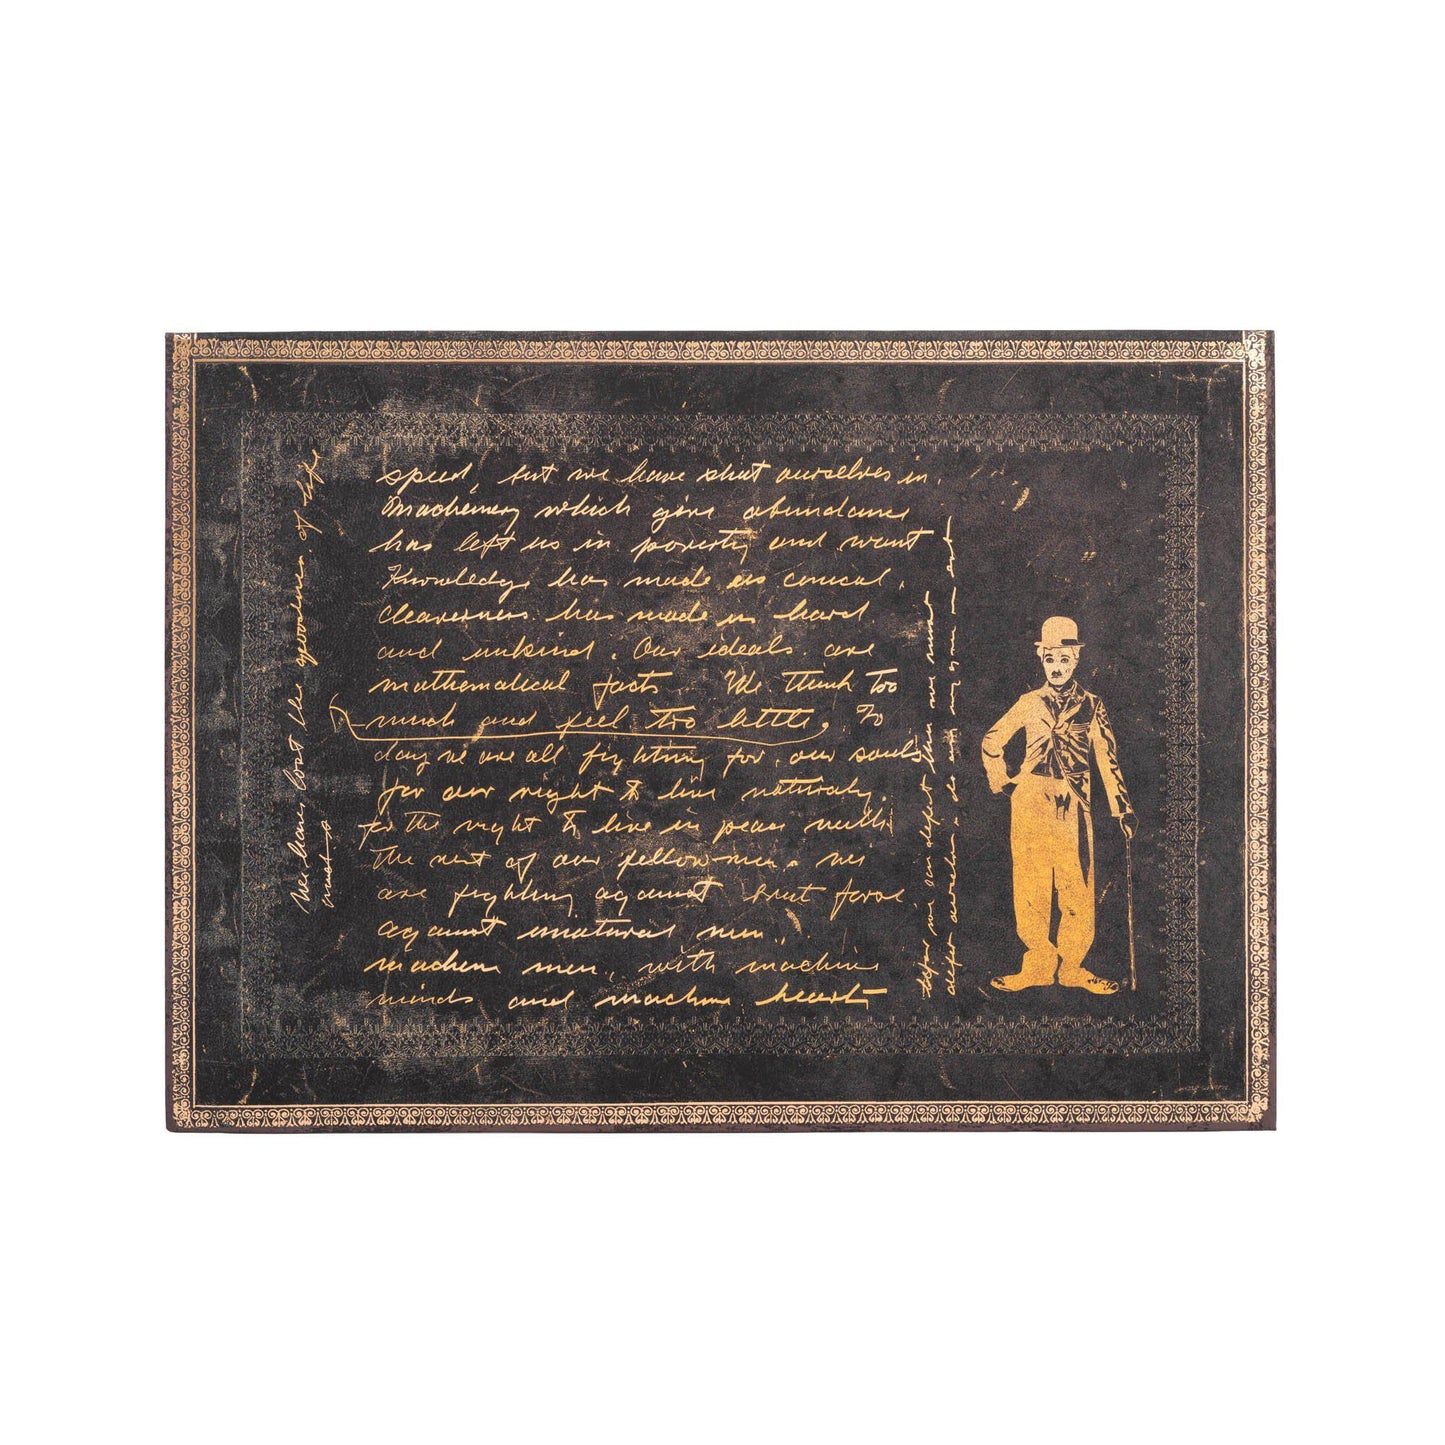 We have lost the goodness of life
speed, but we have shut ourselves in.
Machinery which give abundance
has left us in poverty and want
Knowledge has made us cinical,
cleaverness has made us hard
and unkind. Our ideals are
mathematical facts. We think too
much and feel too little. To
day we are all fighting for our souls
for our right to live naturaly.
for the right to live in peace with
the rest of our fellow men. We
are fighting against brut force
against unatural men,
machine men, with machine
minds and machine hearts
before we can defeat him we must